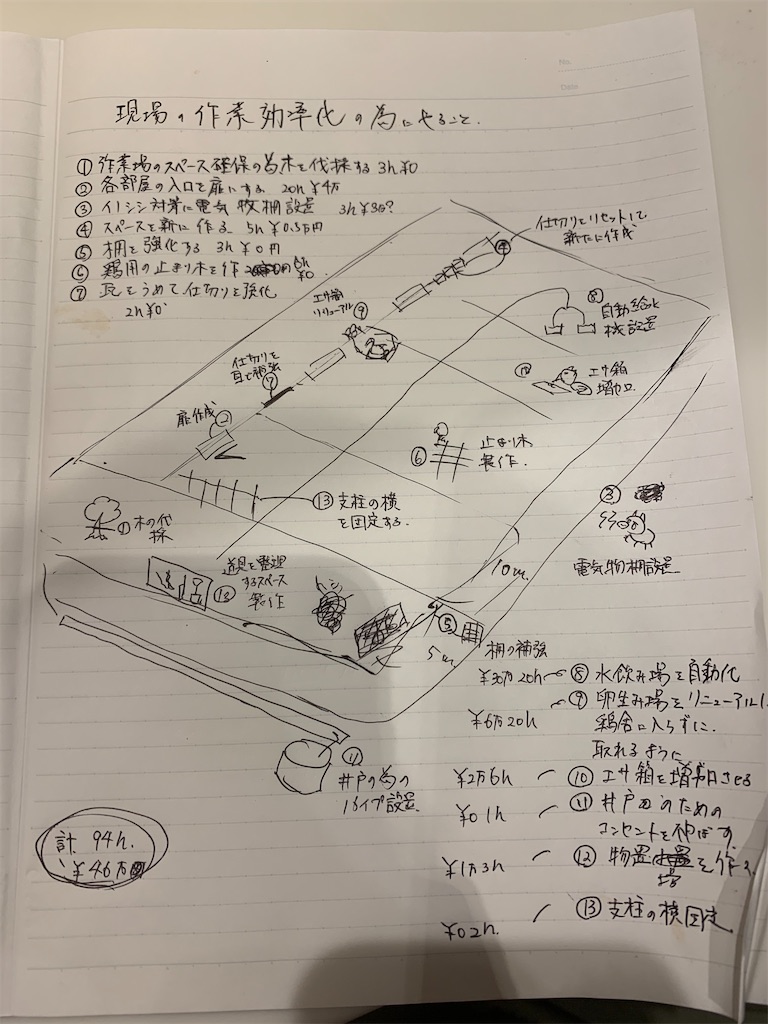 No.
Date
現場の作業効率化の為にやること.
① 作業場のスペース確保の為木を伐採する 3h ¥0
② 各部屋の入口を扉にする 20h ¥4万
③ イノシシ対策に電気牧柵設置 3h ¥3万?
④ スペースを新に作る 5h ¥0.5万円
⑤ 柵を強化する 3h ¥0円
⑥ 鶏用の止まり木を作 6h ¥0
⑦ 瓦をうめて仕切りを強化
2h ¥0
仕切りをリセットして
新たに作成
④
エサ箱
リニューアル
⑨
⑧
自動給水
機設置
仕切りを
瓦で補強
⑦
⑩
エサ箱
増加
扉作成
②
⑥
止まり木
製作.
⑬ 支柱の横
を固定する.
③
電気物柵設置
①木の伐
採
道具を整理
するスペース
製作
⑫
10m
⑤
5m
柵の補強
¥30万 20h ⑧ 水飲み場を自動化
¥6万 20h ⑨ 卵生み場をリニューアル!
鶏舎に入らずに.
取れるように
¥2万 6h ⑩ エサ箱を増加させる
¥0 1h ⑪ 井戸のための
コンセントを伸ばす
¥1万 3h ⑫ 物置場を作る
¥0 2h. ⑬ 支柱の横固定
⑪
井戸の為の
パイプ設置
計 94h.
¥46万